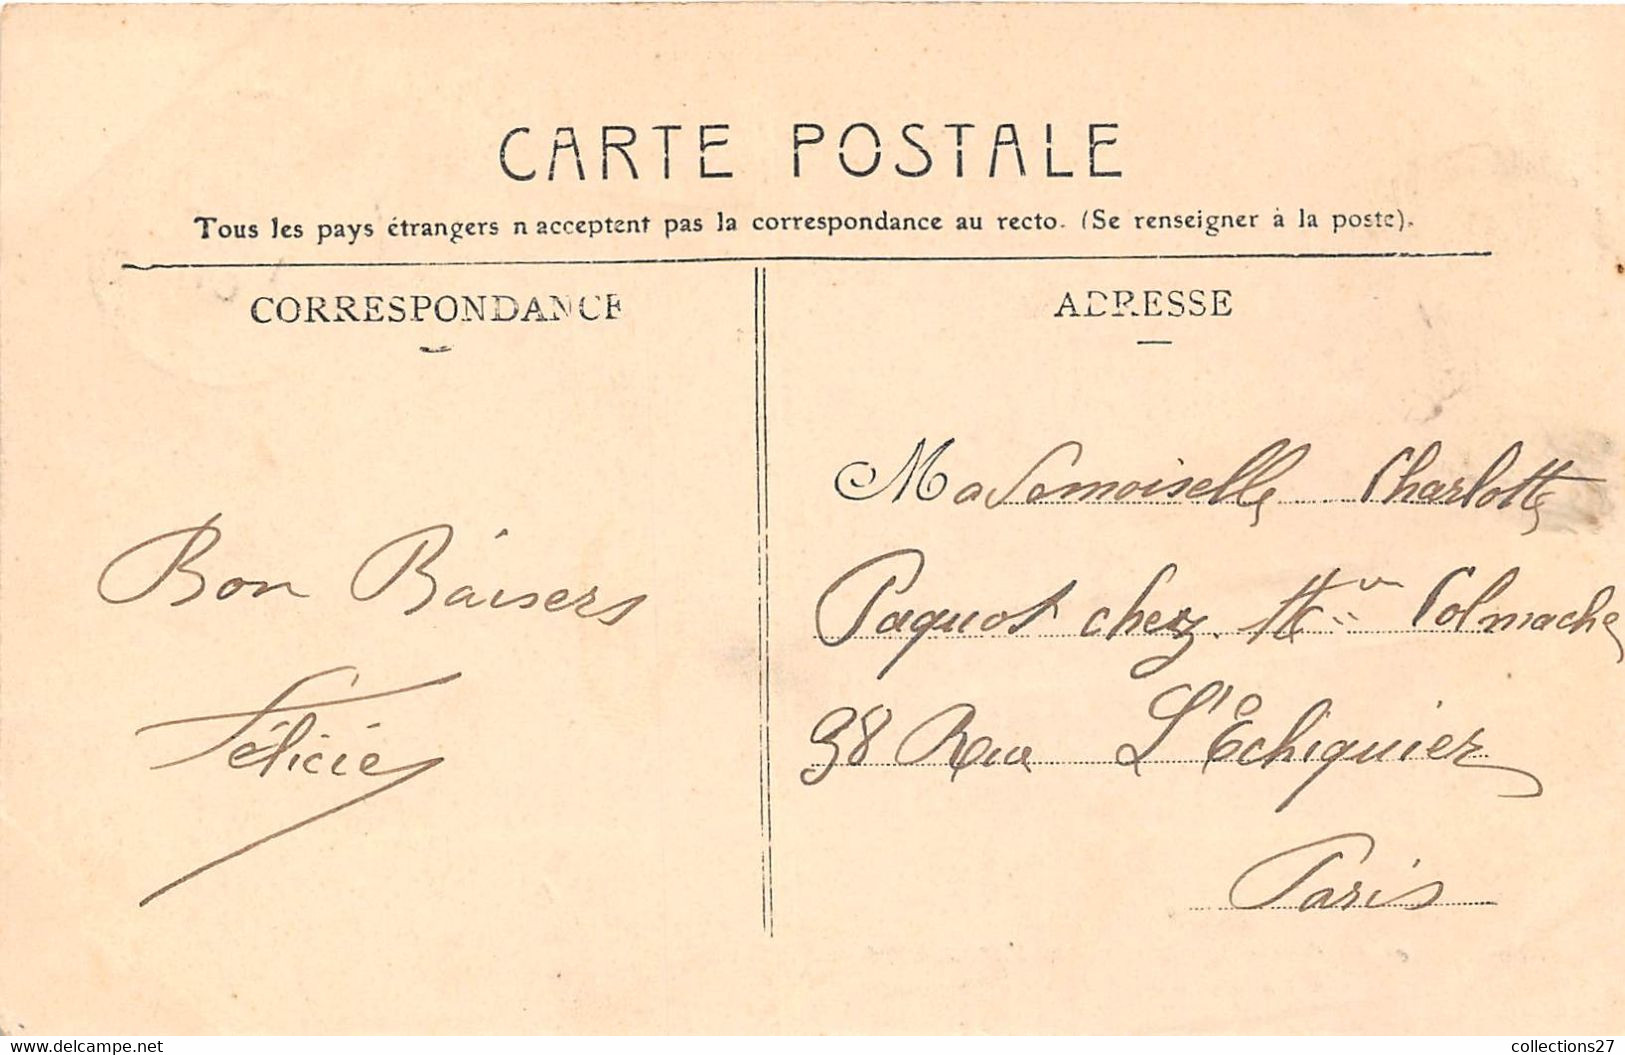 CARTE POSTALE
Tous les pays étrangers n acceptent pas la correspondance au recto. (Se renseigner à la poste).
CORRESPONDANCE
ADRESSE
Bon Baisers
Félicie
Mademoiselle Charlotte
Paquot chez Mr Colmache
38 Rue L'Echiquier
Paris
www.delcampe.net
collections27